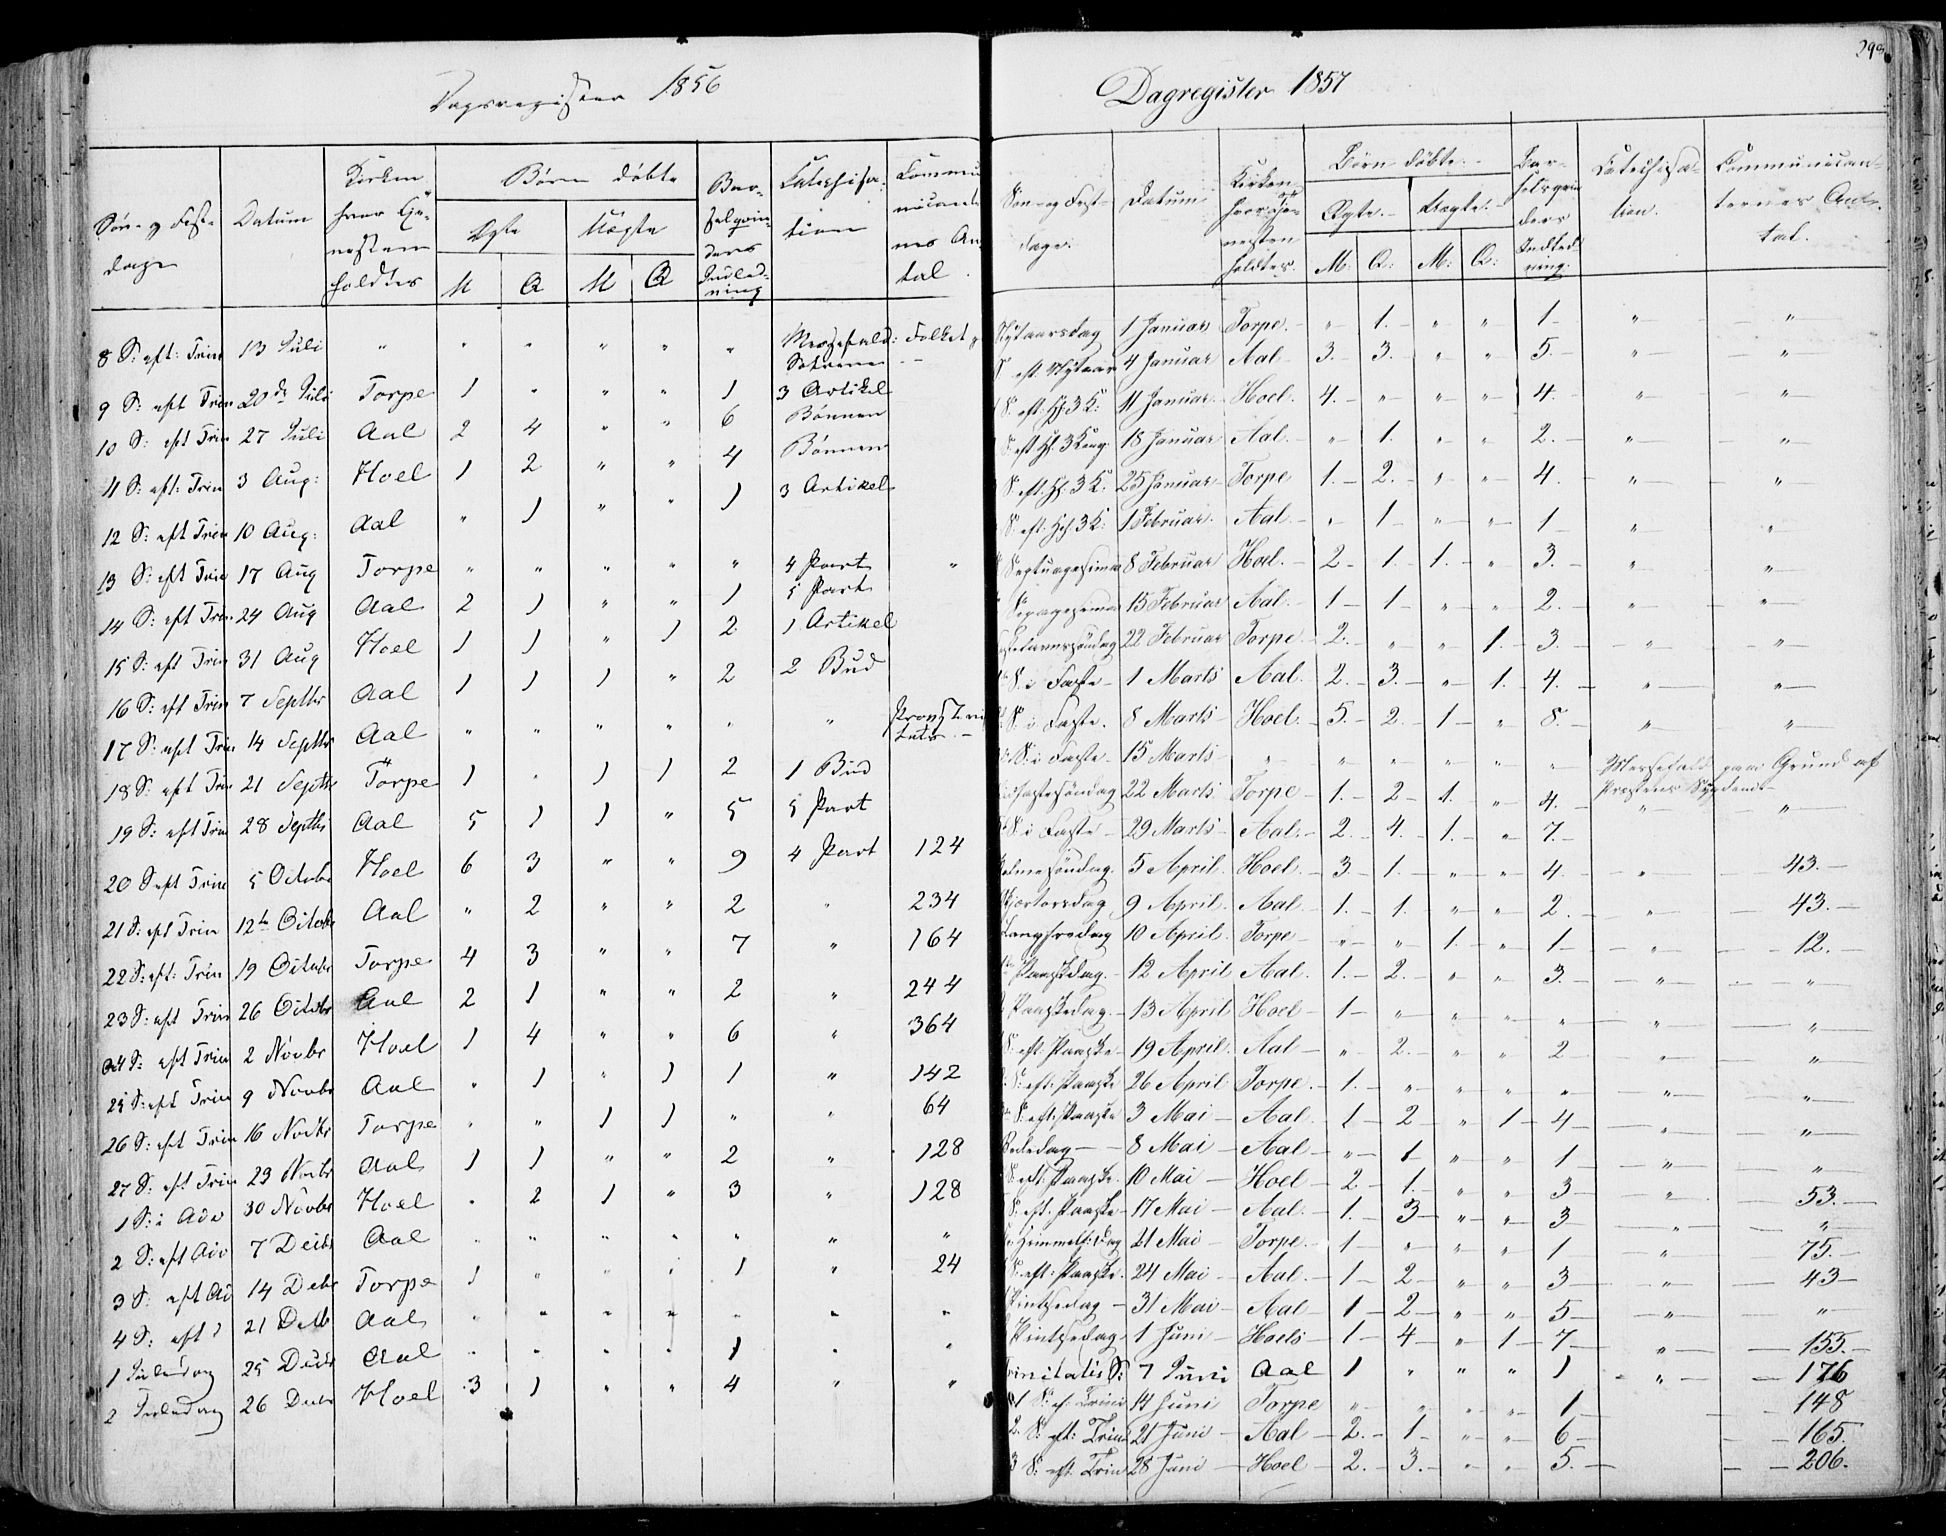 Dagregister 1856
Søn- og Fest-dage | Datum | Kirken hvor Tje-nesten holdtes | Børn døbte | Bar-selqvin-ders Indled-ning | Catechisa-tion | Communi-canter-nes An-tal
Ægte | Uægte
M | Q | M | Q
8 S: eft: Trin | 13 Juli | " | " | " | " | " | " | Messefald: Folket
9 S: eft Trin | 20de Juli | Torpe | 1 | " | " | " | 1 | 3 Artikel
10 S: eft Trin | 27 Juli | Aal | 2 | 4 | " | " | 6 | Bønnen
11 S: eft: Trin | 3 Aug: | Hoel | 1 | 2 | " | " | 4 | Bønnen
12 S: eft Trin | 10 Aug: | Aal | " | 1 | " | " | 1 | 3 Artikel
13 S: eft Trin | 17 Aug | Torpe | " | " | " | " | " | 4 Part | "
14 S: eft Trin | 24 Aug | Aal | 2 | 1 | " | " | 1 | 5 Part
15 S: eft Trin | 31 Aug | Hoel | 1 | 1 | " | 1 | 2 | 1 Artikel
16 S: eft Trin | 7 Septbr | Aal | 1 | 1 | 1 | " | 2 | 2 Bud
17 S: eft Trin | 14 Septbr | Aal | " | " | " | " | " | "
18 S: eft Trin | 21 Septbr | Torpe | 1 | " | 1 | 1 | 2 | 1 Bud
19 S: eft Trin | 28 Septbr | Aal | 5 | 1 | 1 | " | 5 | 5 Part
20 S eft Trin | 5 Octobr | Hoel | 6 | 3 | " | " | 9 | 4 Part | 124
21 S: eft Trin | 12te Octobr | Aal | " | 2 | " | " | 2 | " | 234
22 S: eft: Trin | 19 Octobr | Torpe | 4 | 3 | " | " | 7 | " | 164
23 S: eft Trin | 26 Octobr | Aal | 2 | 1 | " | " | 2 | " | 244
24 S: eft Trin | 2 Novbr | Hoel | 1 | 4 | " | " | 6 | " | 364
25 S: eft Trin | 9 Novbr | Aal | " | 1 | " | 1 | 1 | " | 142
26 S: eft Trin | 16 Novbr | Torpe | " | " | 1 | 1 | " | " | 64
27 S: eft Trin | 23 Novbr | Aal | 1 | 1 | " | " | 2 | " | 128
1 S: i Adv | 30 Novbr | Hoel | " | 2 | 1 | " | 3 | " | 128
2 S: eft Adv | 7 Decbr | Aal | " | " | " | " | " | " | "
3 S: eft Ad | 14 Decbr | Torpe | 1 | " | " | " | 1 | " | 24
4 S: eft | 21 Decbr | Aal | " | " | " | " | " | " | "
1 Juledag | 25 Decbr | Aal | " | " | " | " | 1 | " | "
2 Juledag | 26 Decbr | Hoel | 3 | 1 | " | " | 4 | " | "
Dagregister 1857
Søn- og Fest-dage. | Datum | Kirken, hvor Tje-nesten holdtes. | Børn døbte. | Bar-selqvin-ders Indled-ning. | Catechisa-tion. | Communican-ternes An-tal.
Ægte. | Uægte.
M: | Q: | M: | Q:
Nytaarsdag | 1 Januar | Torpe. | " | 1. | " | " | 1 | " | "
S. eft. Nytaar | 4 Januar | Aal | 3. | 3. | " | " | 5. | " | "
S. eft. H. 3 K: | 11 Januar | Hoel. | 4. | " | " | " | 4. | " | "
S eft H. 3 Kong. | 18 Januar | Aal. | " | 1. | " | " | 2. | " | "
S. eft. H. 3 K: | 25 Januar | Torpe | 1. | 2. | " | " | 4. | " | "
S. eft. H. 3 K: | 1 Februar. | Aal. | " | 1 | " | " | 1 | " | "
Septuagesima | 8 Februar | Hoel. | 2 | 1. | 1. | " | 3. | " | "
Sexagesima | 15 Februar | Aal. | 1 | 1 | " | " | 2. | " | "
Fastelavnssøndag | 22 Februar | Torpe. | 2. | " | " | 1. | 3. | " | "
S. i Faste | 1 Marts | Aal. | 2. | 3. | " | 1. | 4. | " | "
S: i Faste. | 8 Marts | Hoel. | 5. | 2. | 1 | " | 8. | " | "
S: i Faste. | 15 Marts | " | " | " | " | " | " | Messefald paa Grund af Præstens Sygdom
Midfastesøndag | 22 Marts | Torpe | 1. | 2 | 1. | " | 4. | " | "
S: i Faste | 29 Marts | Aal. | 2. | 4. | 1. | " | 7.
Palmesøndag. | 5 April. | Hoel. | 3. | 1. | " | " | 4. | " | 43.
Skjertorsdag | 9 April. | Aal. | 1. | 1. | " | " | 2. | " | 43.
Langfredag | 10 April. | Torpe | " | " | 1. | " | 1 | " | 12.
1 Paaskedag. | 12 April | Aal. | 1. | 2. | " | " | 3. | " | "
2 Paaskedag. | 13 April | Hoel | 1 | " | " | " | " | " | "
S. eft. Paaske | 19 April. | Aal | " | 2. | " | " | 2 | " | "
S: eft: Paaske | 26 April | Torpe. | 1. | " | " | " | " | " | "
S. eft: Paaske | 3 Mai | Aal. | 1 | 2 | " | 1 | 4 | " | "
Bededag | 8 Mai | Aal | " | 1 | " | " | 1 | " | "
S. eft. Paaske. | 10 Mai | Hoel | 2 | 1. | " | " | 3 | " | 53.
S. eft. Paaske | 17 Mai | Aal. | 1. | 3 | " | " | 3 | " | "
Himmelf: dag | 21 Mai | Torpe. | 1 | " | " | " | 1 | " | 75.
S. eft: Paaske. | 24 Mai | Aal. | 1 | 2 | " | " | 3 | " | 43
Pintsedag | 31 Mai | Aal | 1 | 2 | " | " | 5 | " | "
Pintsedag | 1 Juni | Hoels | 1 | 4 | " | 1 | 7 | " | 155.
Trinitatis S: | 7 Juni | Aal | 1 | " | " | " | 1 | " | 176
1 S: ef: Trini | 14 Juni | Torpe | " | " | " | " | 1 | 148
2. S: eft: Trin | 21 Juni | Aal | 2. | 1 | " | " | 6 | 165.
3 S: eft. Trin | 28 Juni | Hoel | 2. | 3. | " | " | 5. | 206.